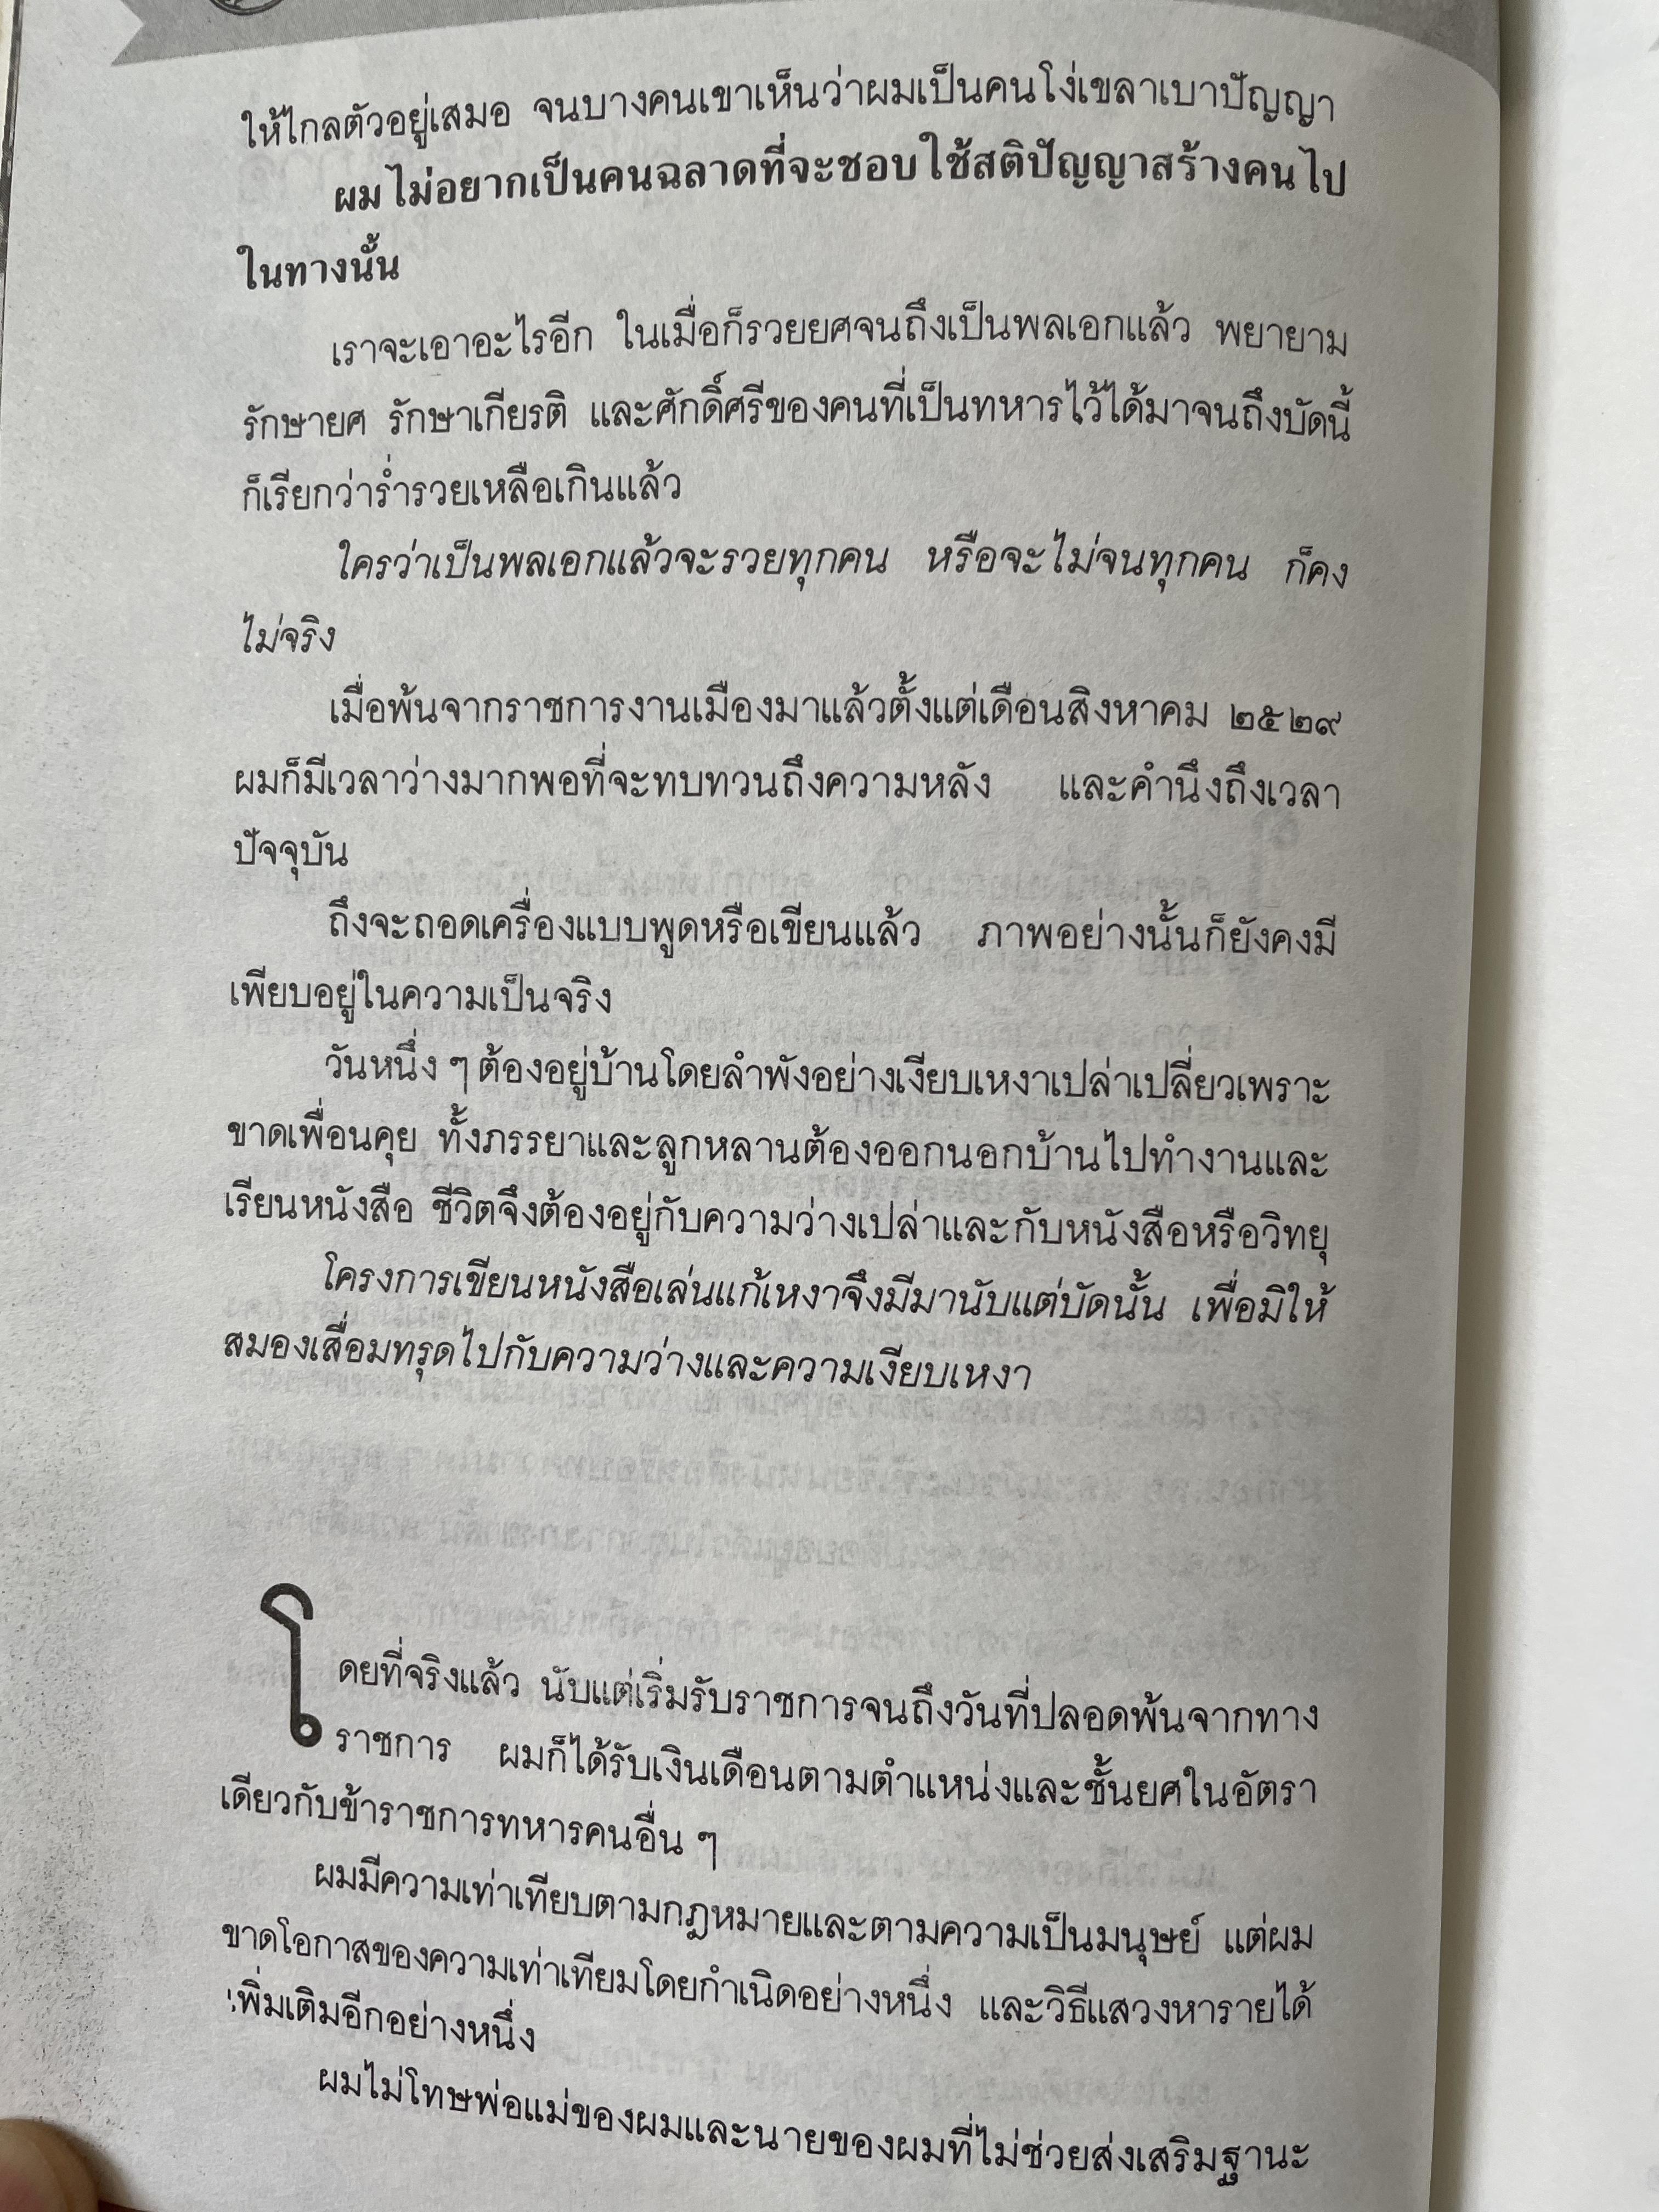 ให้ไกลตัวอยู่เสมอ จนบางคนเขาเห็นว่าผมเป็นคนโง่เขลาเบาปัญญา
ผมไม่อยากเป็นคนฉลาดที่จะชอบใช้สติปัญญาสร้างคนไป
ในทางนั้น
เราจะเอาอะไรอีก ในเมื่อก็รวยยศจนถึงเป็นพลเอกแล้ว พยายาม
รักษายศ รักษาเกียรติ และศักดิ์ศรีของคนที่เป็นทหารไว้ได้มาจนถึงบัดนี้
ก็เรียกว่าร่ำรวยเหลือเกินแล้ว
ใครว่าเป็นพลเอกแล้วจะรวยทุกคน หรือจะไม่จนทุกคน ก็คง
ไม่จริง
เมื่อพ้นจากราชการงานเมืองมาแล้วตั้งแต่เดือนสิงหาคม ๒๕๒๙
ผมก็มีเวลาว่างมากพอที่จะทบทวนถึงความหลัง และคำนึงถึงเวลา
ปัจจุบัน
ถึงจะถอดเครื่องแบบพูดหรือเขียนแล้ว ภาพอย่างนั้นก็ยังคงมี
เพียบอยู่ในความเป็นจริง
วันหนึ่ง ๆ ต้องอยู่บ้านโดยลำพังอย่างเงียบเหงาเปล่าเปลี่ยวเพราะ
ขาดเพื่อนคุย ทั้งภรรยาและลูกหลานต้องออกนอกบ้านไปทำงานและ
เรียนหนังสือ ชีวิตจึงต้องอยู่กับความว่างเปล่าและกับหนังสือหรือวิทยุ
โครงการเขียนหนังสือเล่นแก้เหงาจึงมีมานับแต่บัดนั้น เพื่อมิให้
สมองเสื่อมทรุดไปกับความว่างและความเงียบเหงา
โดยที่จริงแล้ว นับแต่เริ่มรับราชการจนถึงวันที่ปลอดพ้นจากทาง
ราชการ ผมก็ได้รับเงินเดือนตามตำแหน่งและชั้นยศในอัตรา
เดียวกับข้าราชการทหารคนอื่น ๆ
ผมมีความเท่าเทียบตามกฎหมายและตามความเป็นมนุษย์ แต่ผม
ขาดโอกาสของความเท่าเทียมโดยกำเนิดอย่างหนึ่ง และวิธีแสวงหารายได้
เพิ่มเติมอีกอย่างหนึ่ง
ผมไม่โทษพ่อแม่ของผมและนายของผมที่ไม่ช่วยส่งเสริมฐานะ